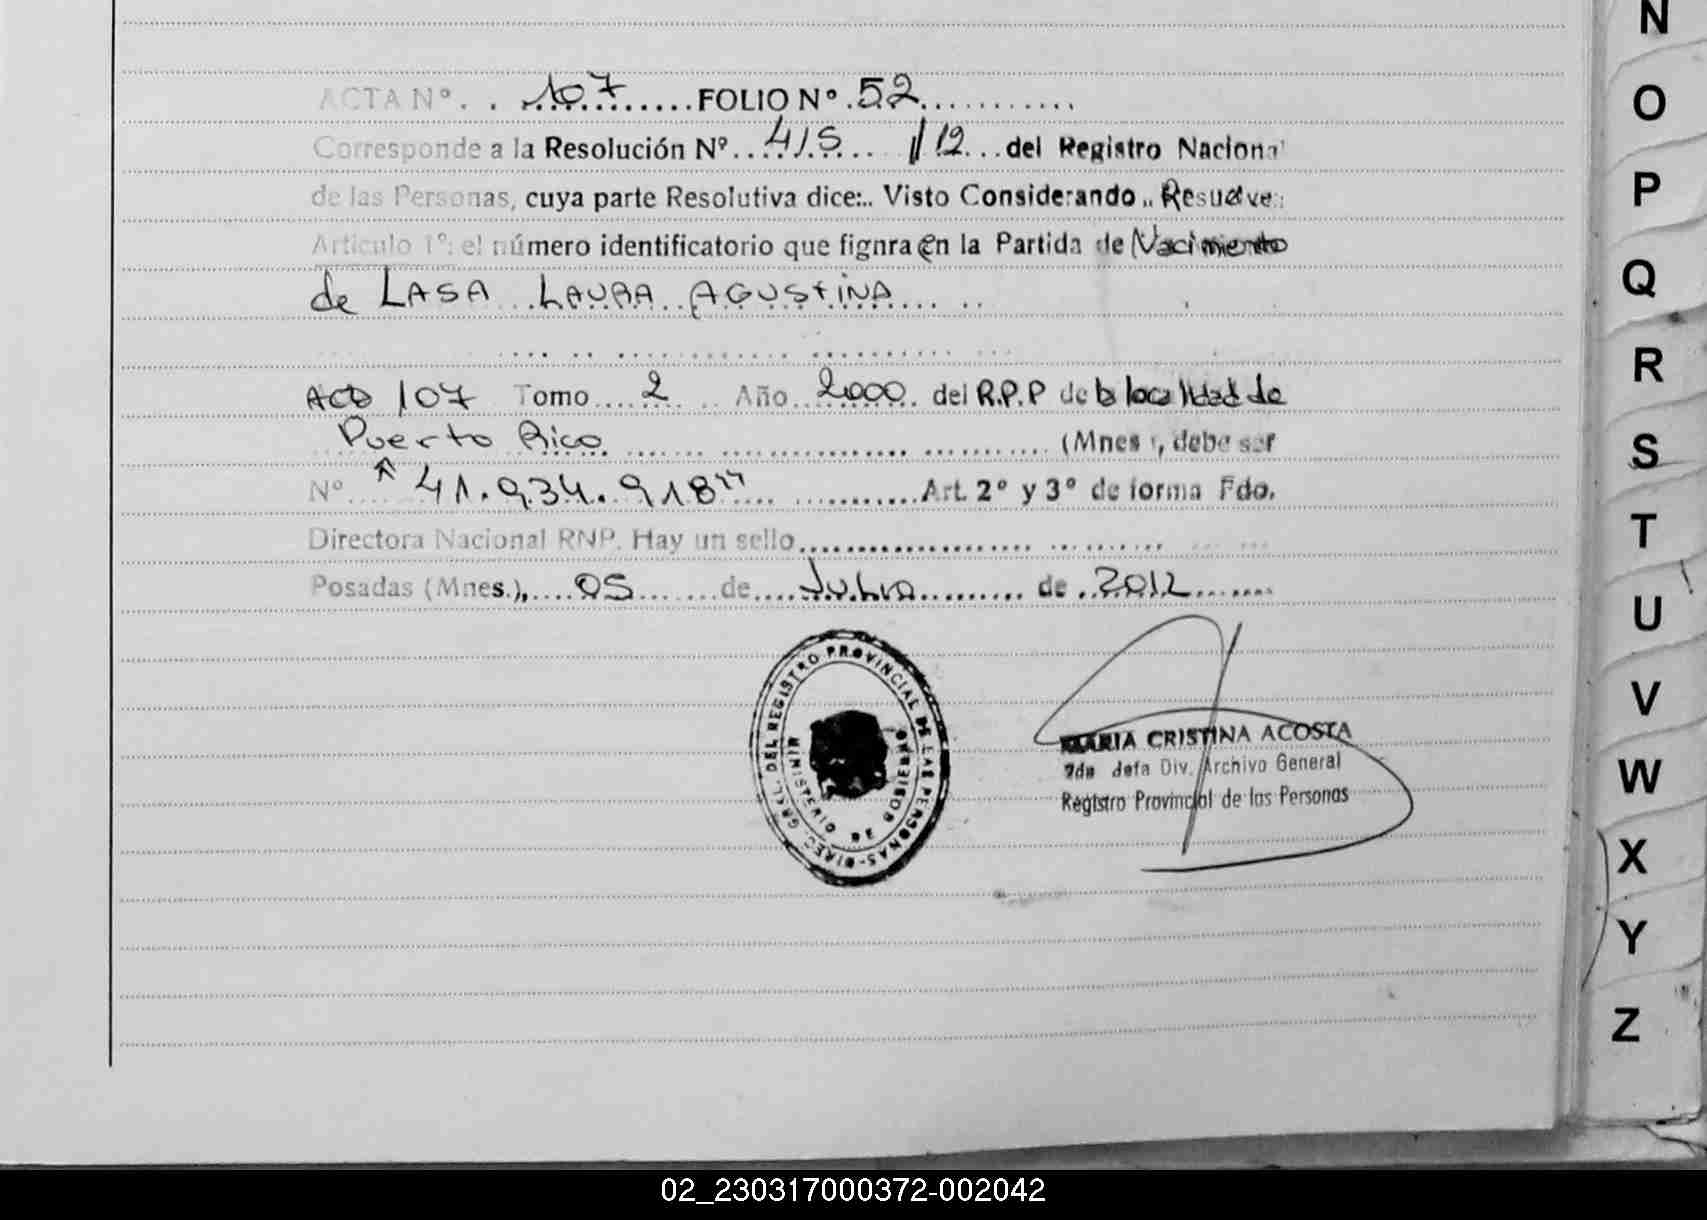 ACTA Nº.. 107 ..... FOLIO Nº. 52 ............
Corresponde a la Resolución Nº.. 415 .. /12 ... del Registro Nacional
de las Personas, cuya parte Resolutiva dice:.. Visto Considerando .. Resuelve:
Artículo 1º: el número identificatorio que fignra en la Partida de Nacimiento
de LASA LAURA AGUSTINA
Acta 107 Tomo 2 Año 2000 del R.P.P de la localidad de
Puerto Rico (Mnes), debe ser
Nº "41.934.918" Art. 2º y 3º de forma Fdo.
Directora Nacional RNP. Hay un sello
Posadas (Mnes.), 05 de Julio de 2012
DIREC. GRAL. DEL REGISTRO PROVINCIAL DE LAS PERSONAS
MINISTERIO DE GOBIERNO
MARIA CRISTINA ACOSTA
Jefa Div. Archivo General
Registro Provincial de las Personas
N
O
P
Q
R
S
T
U
V
W
X
Y
Z
02_230317000372-002042